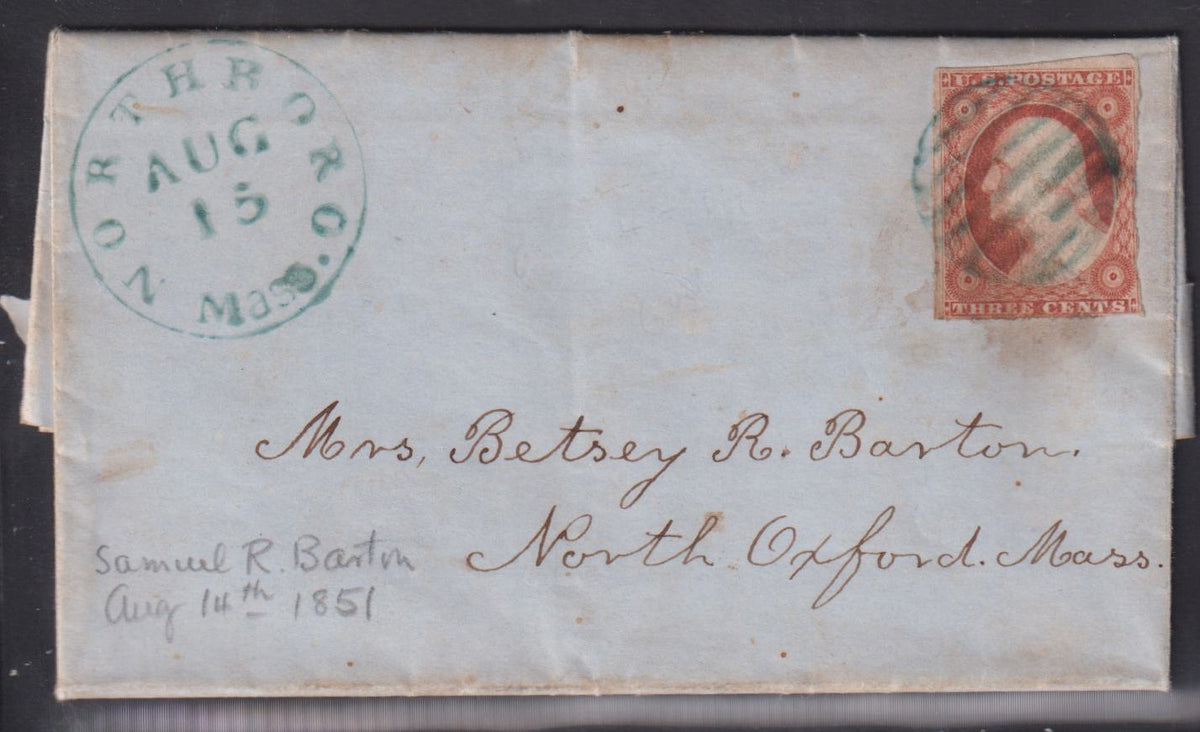 NORTHBORO.
AUG
15
Mass.
U.S. POSTAGE
THREE CENTS
Mrs, Betsey R. Barton.
North Oxford. Mass.
Samuel R. Barton
Aug 14th 1851